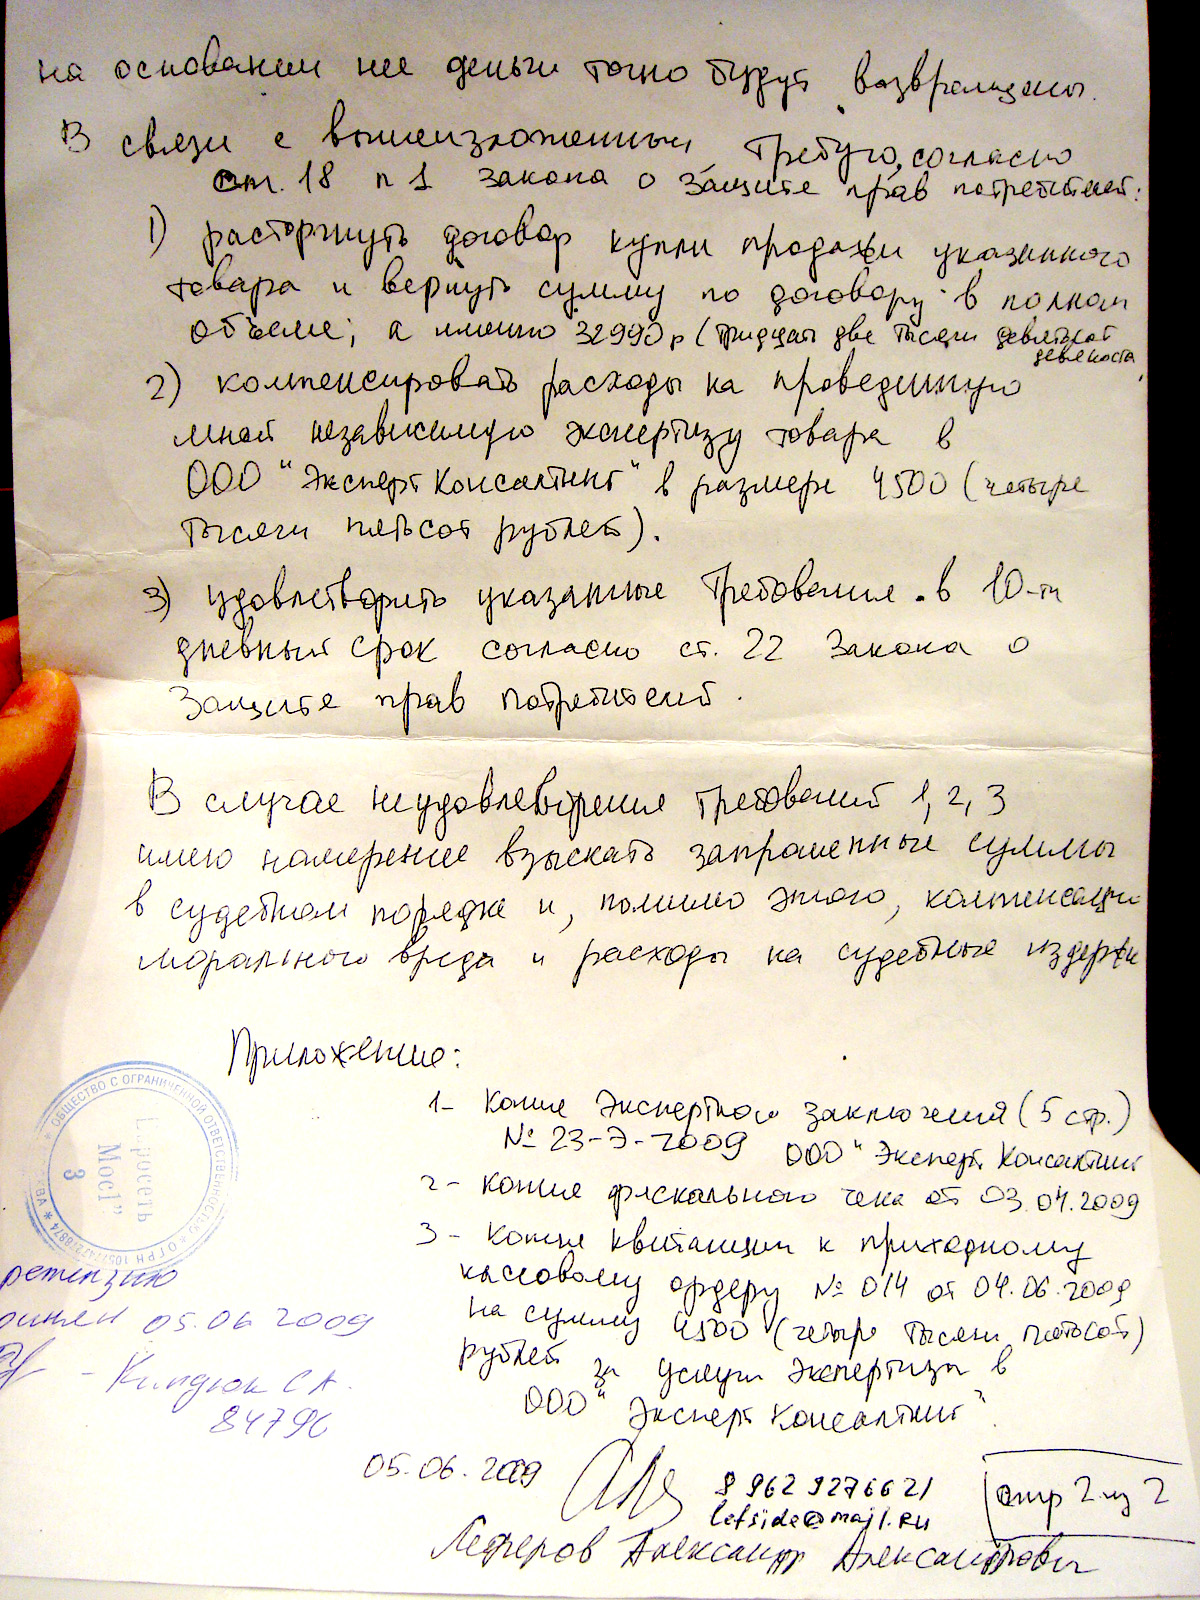 на основании нее деньги точно будут возвращены.
В связи с вышеизложенным требую, согласно
ст. 18 п 1 закона о защите прав потребителей:
1) расторгнуть договор купли продажи указанного
товара и вернуть сумму по договору в полном
объеме, а именно 32990 р (тридцать две тысячи девятьсот
девяноста,
2) компенсировать расходы на проведенную
мной независимую экспертизу товара в
ООО "Эксперт Консалтинг" в размере 4500 (четыре
тысячи пятьсот рублей).
3) удовлетворить указанные требования в 10-ти
дневный срок согласно ст. 22 Закона о
Защите прав потребителей.
В случае неудовлетворения требований 1, 2, 3
имею намерение взыскать запрошенные суммы
в судебном порядке и, помимо этого, компенсацию
морального вреда и расходы на судебные издержки
Приложение:
1- Копия Экспертного заключения (5 стр.)
№ 23-Э-2009 ООО "Эксперт Консалтинг
2- копия фискального чека от 03.04.2009
3- Копия квитанции к приходному
кассовому ордеру № 014 от 04.06.2009
на сумму 4500 (четыре тысячи пятьсот)
рублей за услуги экспертизы в
ООО "Эксперт Консалтинг".
ОБЩЕСТВО С ОГРАНИЧЕННОЙ ОТВЕТСТВЕННОСТЬЮ * ОГРН
3
ретензию
05.06 2009
С А.
84796
05.06.2009
8 962 9276621
lefside@mail.ru
стр 2 из 2
Леферов Александр Александрович